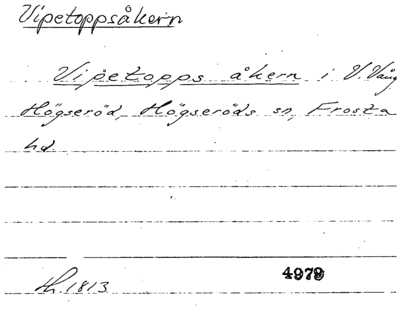 Vipetoppsåkern
Vipetopps åkern i V. Vång
Högseröd, Högseröds sn, Frosta
hd
Lh. 1813
4979